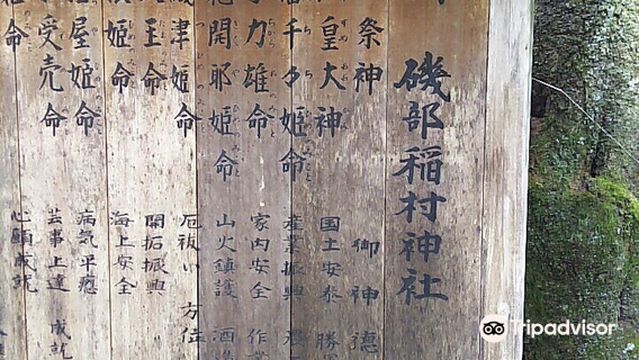 磯部稲村神社
祭神 御神徳
皇大神 国土安泰 勝
千々姫命 産業振興
力雄命 家内安全 作
開耶姫命 山火鎮護 酒
津姫命 厄祓い 方位
王命 開拓振興
姫命 海上安全
屋姫命 病気平癒
受売命 芸事上達 成就
命 心願成就
Tripadvisor